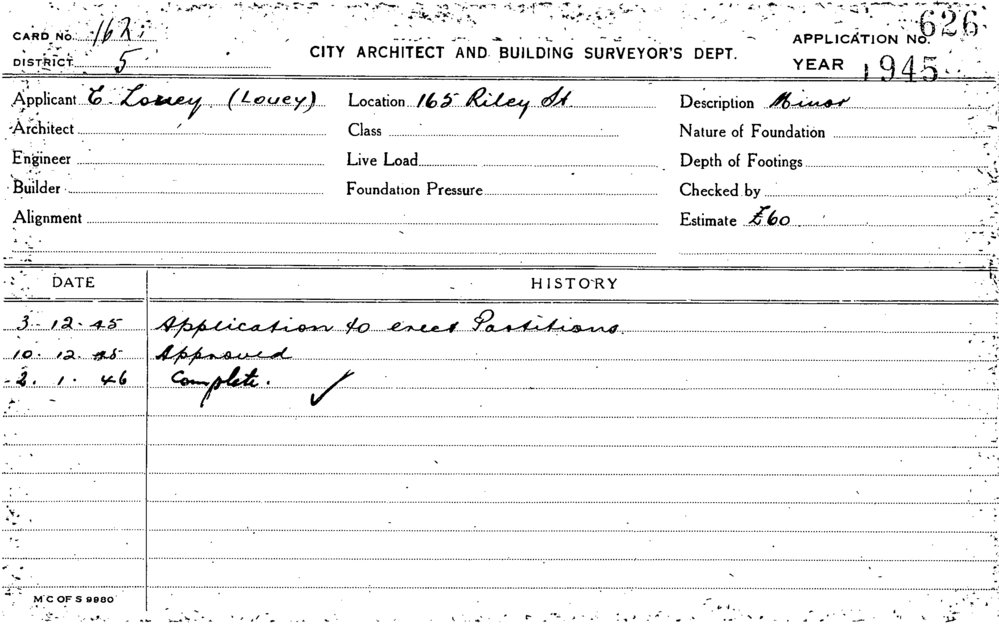 CARD No. 162
APPLICATION No. 626
DISTRICT 5
CITY ARCHITECT AND BUILDING SURVEYOR'S DEPT.
YEAR 1945
Applicant C. Louey (Louey) Location 165 Riley St Description Minor
Architect Class Nature of Foundation
Engineer Live Load Depth of Footings
Builder Foundation Pressure Checked by
Alignment Estimate £60
DATE HISTORY
3. 12. 45 Application to erect Partitions.
10. 12. 45 Approved
2. 1. 46 Complete. ✓
M C OF S 9980